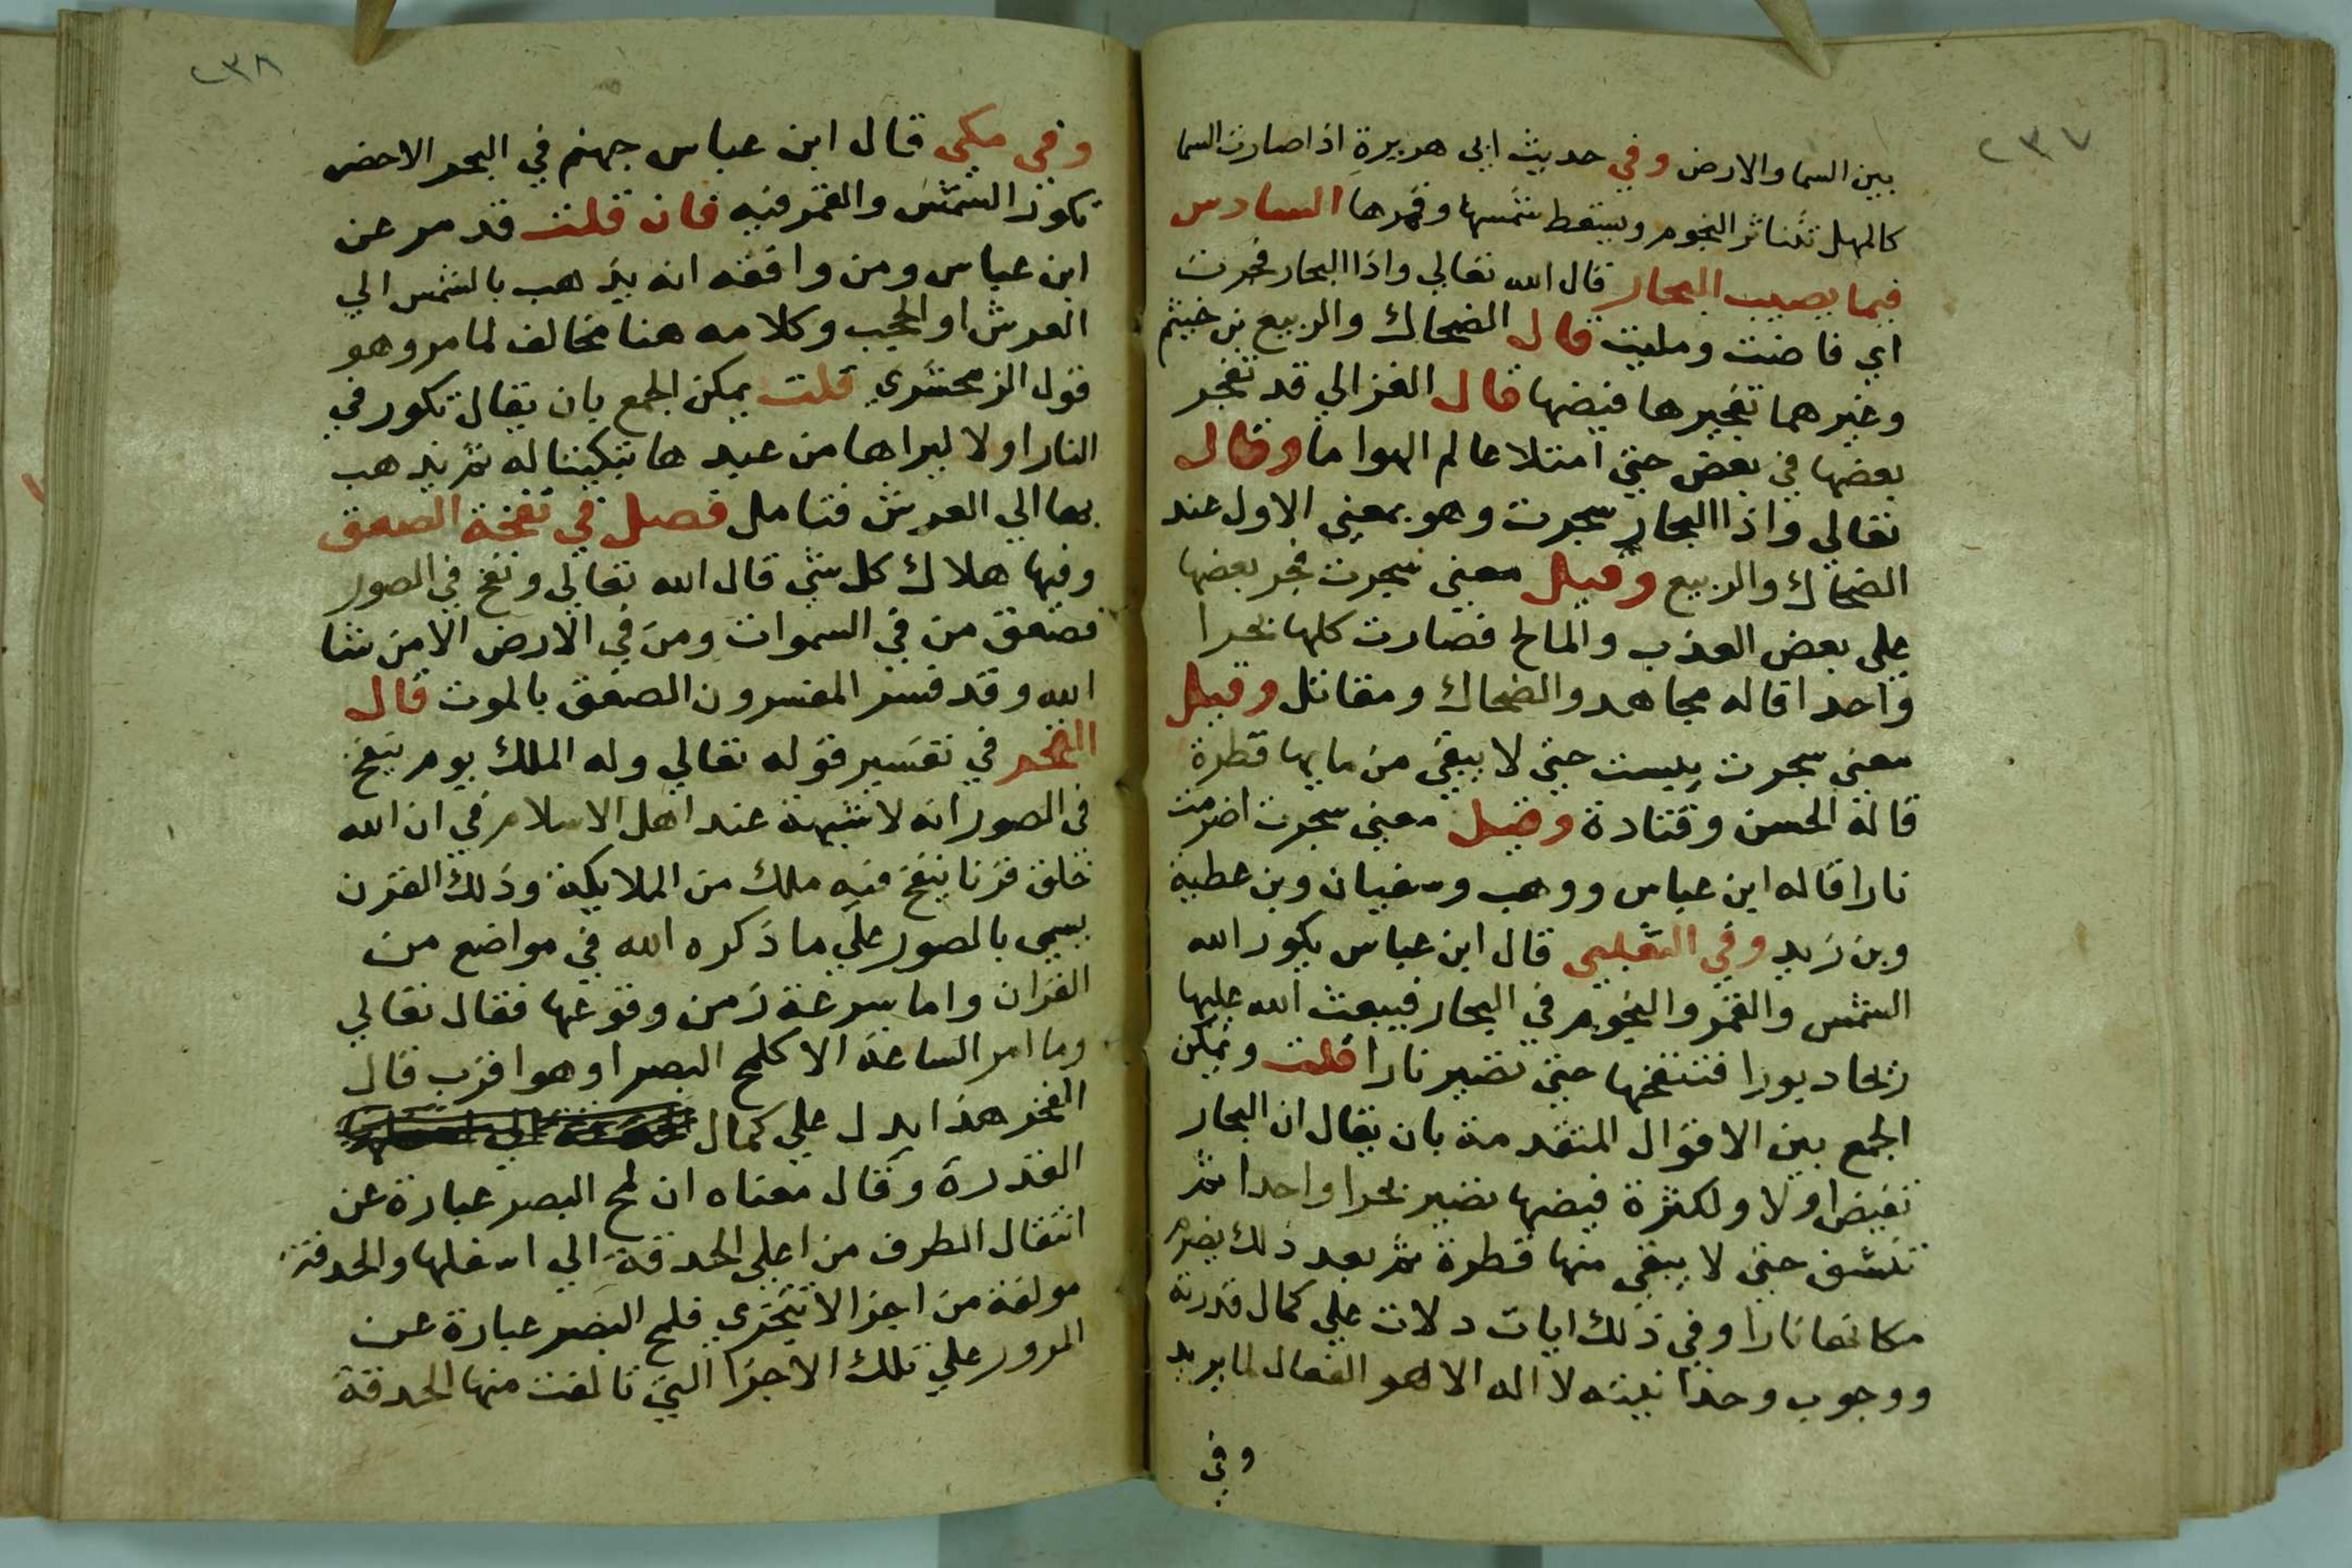 ٢٣٧
بين السما والارض وفي حديث ابي هريرة اذا صارت السما
كالمهل تتناثر النجوم ويسقط شمسها وقمرها السادس
فيما يصيب البحار قال الله تعالي واذا البحار فجرت
اي فاضت ومليت قال الضحاك والربيع بن خيثم
وغيرهما تفجيرها فيضها قال الغزالي قد تفجر
بعضها في بعض حتي امتلا عالم الهوا ما وقال
تعالي واذا البحار سجرت وهو بمعني الاول عند
الضحاك والربيع وقيل معني سجرت فجر بعضها
علي بعض العذب والمالح فصارت كلها بحرا
واحدا قاله مجاهد والضحاك ومقاتل وقيل
معني سجرت يبست حتي لا يبقي من مايها قطرة
قاله الحسن وقتادة وقيل معني سجرت اضرمت
نارا قاله ابن عباس ووهب وسفيان وبن عطية
وبن زيد وفي الثعلبي قال ابن عباس يكور الله
الشمس والقمر والنجوم في البحار فيبعث الله عليها
ريحا دبورا فتنفخها حتي تصير نارا قلت ويمكن
الجمع بين الاقوال المتقدمة بان يقال ان البحار
تفيض اولا ولكثرة فيضها تصير بحرا واحدا ثم
تنشف حتي لا يبقي منها قطرة ثم بعد ذلك يضرم
مكانها نارا وفي ذلك ايات دلات علي كمال قدرته
ووجوب وحدانيته لا اله الا هو الفعال لما يريد
وفي
٢٣٨
وفي مكي قال ابن عباس جهنم في البحر الاخضر
تكور الشمس والقمر فيه فان قلت قد مر عن
ابن عباس ومن وافقه انه يذهب بالشمس الي
العرش او الحجب وكلامه هنا مخالف لما مر وهو
قول الزمحشري قلت يمكن الجمع بان يقال تكور في
النار اولا ليراها من عبدها تبكيتا له ثم يذهب
بها الي العرش فتامل فصل في نفخة الصعق
وفيها هلاك كل شي قال الله تعالي ونفخ في الصور
فصعق من في السموات ومن في الارض الا من شا
الله وقد فسر المفسرون الصعق بالموت قال
الفخر في تفسير قوله تعالي وله الملك يوم ينفخ
في الصور انه لا شبهة عند اهل الاسلام في ان الله
خلق قرنا ينفخ فيه ملك من الملايكة وذلك القرن
يسمي بالصور علي ما ذكره الله في مواضع من
القران واما سرعة زمن وقوعها فقال تعالي
وما امر الساعة الا كلمح البصر او هو اقرب قال
الفخر هذا يدل علي كمال
القدرة وقال معناه ان لمح البصر عبارة عن
انتقال الطرف من اعلي الحدقة الي اسفلها والحدقة
مولفة من اجزا لا تتجزي فلمح البصر عبارة عن
المرور علي تلك الاجزا التي تالفت منها الحدقة